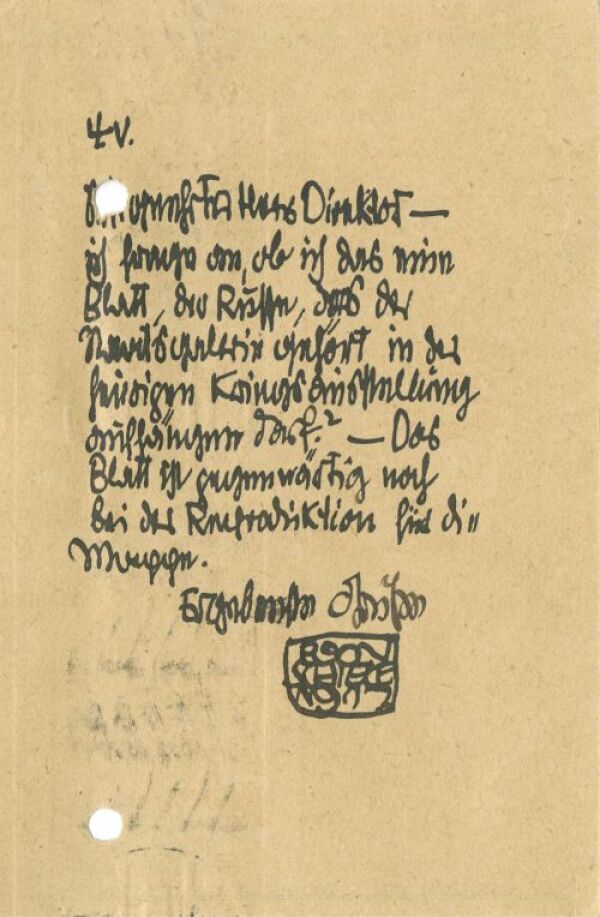 4 V.
geehrter Herr Direktor —
ich frage an, ob ich das eine
Blatt, der Russe, das der
Staatsgalerie gehört in der
heurigen Kriegsausstellung
aufhängen darf? — Das
Blatt ist gegenwärtig noch
bei der Reproduktion für die
Mappe.
Ergebenste Grüße
EGON
SCHIELE
1917